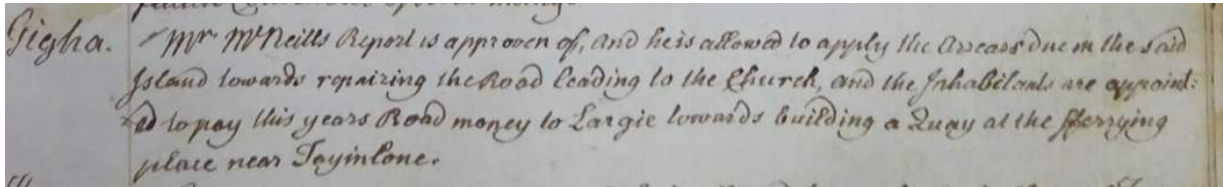 Gigha. Mr McNeills Report is approven of, and he is allowed to apply the Arrears due in the said
Island towards repairing the Road leading to the Church, and the Inhabitants are appoint:
:ed to pay this years Road money to Largie towards building a Quay at the fferrying
place near Tayinlone.